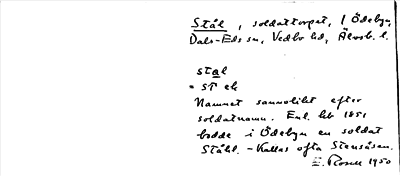 Stål, soldattorpet, i Ödebyn,
Dals-Eds sn, Vedbo hd, Älvsb. l.
stal
= st ek
Namnet sannolikt efter
soldatnamn. Enl. hfl 1851
bodde i Ödebyn en soldat
Ståhl. - Kallas ofta Stensåsen.
E. Rosén 1950